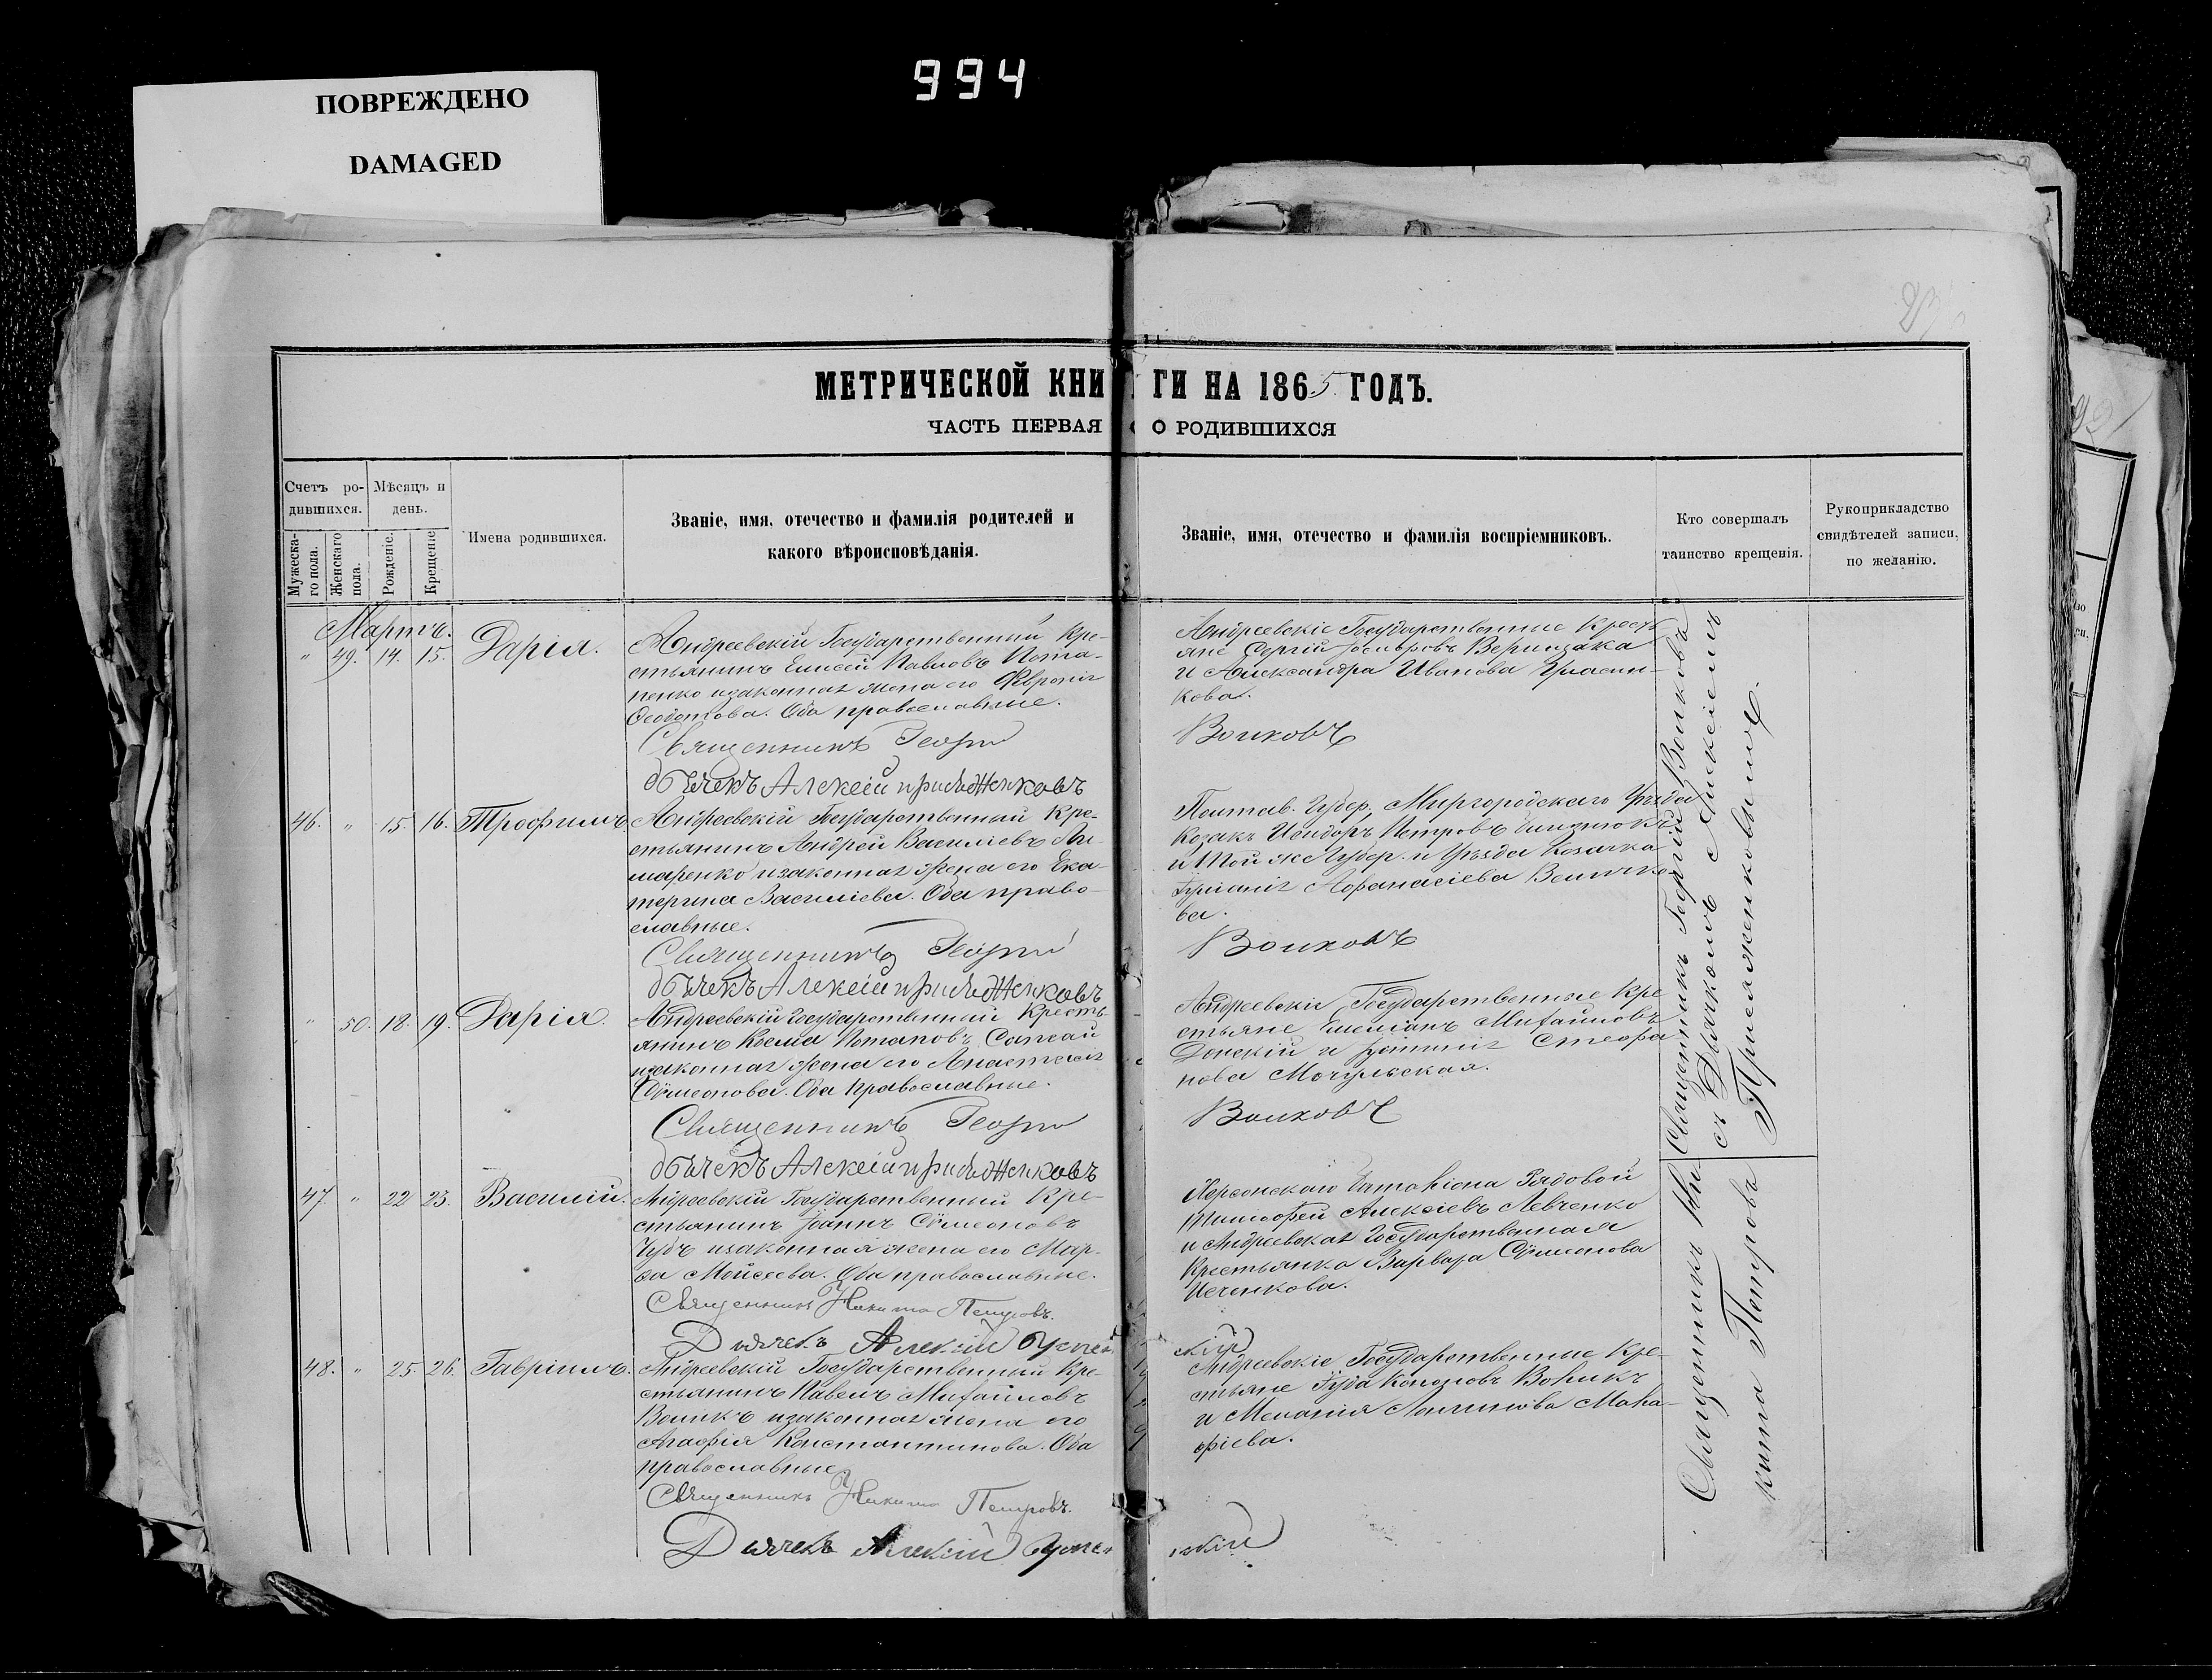 994
ПОВРЕЖДЕНО
DAMAGED
МЕТРИЧЕСКОЙ КНИГИ НА 1865 ГОДЪ.
ЧАСТЬ ПЕРВАЯ О РОДИВШИХСЯ
Счетъ ро-
дившихся.
Мужеска-
го пола.
Женскаго
пола.
Мѣсяцъ и
день.
Рожденіе.
Крещеніе
Имена родившихся.
Званіе, имя, отечество и фамилія родителей и
какого вѣроисповѣданія.
Званіе, имя, отечество и фамилія воспріемниковъ.
Кто совершалъ
таинство крещенія.
Рукоприкладство
свидѣтелей записи,
по желанію.
Мартъ.
" 49. 14. 15. Дарія.
Андреевскій Государственный Кре-
стьянинъ Елисей Павловъ Пота-
пенко изаконная жена его Февронія
Ѳеодотова. Оба православные.
Священникъ Георгій
дьячекъ Алексій присяженковъ
Андреевскіе Государственные Кресть
яне Сергій
и Александра Иванова
кова.
Волковъ
46. " 15. 16. Трофимъ
Андреевскій Государственный Кре-
стьянинъ Андрей Василіевъ Ли-
маренко изаконная жена его Ека-
терина Василіева. Оба право-
славные.
Священникъ Георгій
дьячекъ Алексій присяженковъ
Полтав. Губер. Миргородскаго Уѣзда
Козакъ Исидоръ Петровъ
и Той же Губер. и Уѣзда Козачка
Іуліанія Афанасіева Велич
ва.
Волковъ
" 50. 18. 19. Дарія.
Андреевскій Государственный Кресть-
янинъ Косма Потаповъ
изаконная жена его Анастасія
Сѵмеонова. Оба православные.
Священникъ Георгій
дьячекъ Алексій присяженковъ
Андреевскіе Государственные Кре
стьяне Емеліанъ Михайловъ
Донскій и Стефа
нова Могульская.
Волковъ
Священникъ Георгій Волковъ
съ Дьячкомъ Алексіемъ
Присяженковымъ.
47. " 22 23. Василій.
Андреевскій Государственный Кре-
стьянинъ Іоаннъ Сѵмеоновъ
Чубъ изаконная жена его Мар-
ѳа Моисеева. Оба православные.
Священникъ Никита Петровъ.
Дьячекъ Алексій
Херсонскаго Баталіона Рядовой
Тимофей Алексіевъ Левченко
и Андреевская Государственная
Крестьянка Варвара Сѵмеонова
48. " 25. 26. Гавріилъ.
Андреевскій Государственный Кре-
стьянинъ Павелъ Михайловъ
Воликъ изаконная жена его
Агафія Константинова. Оба
православные
Священникъ Никита Петровъ.
Дьячекъ Алексій
Андреевскіе Государственные Кре-
стьяне Іуда Кононовъ
и Меланія Логинова Мака-
Священникъ Ни
кита Петровъ